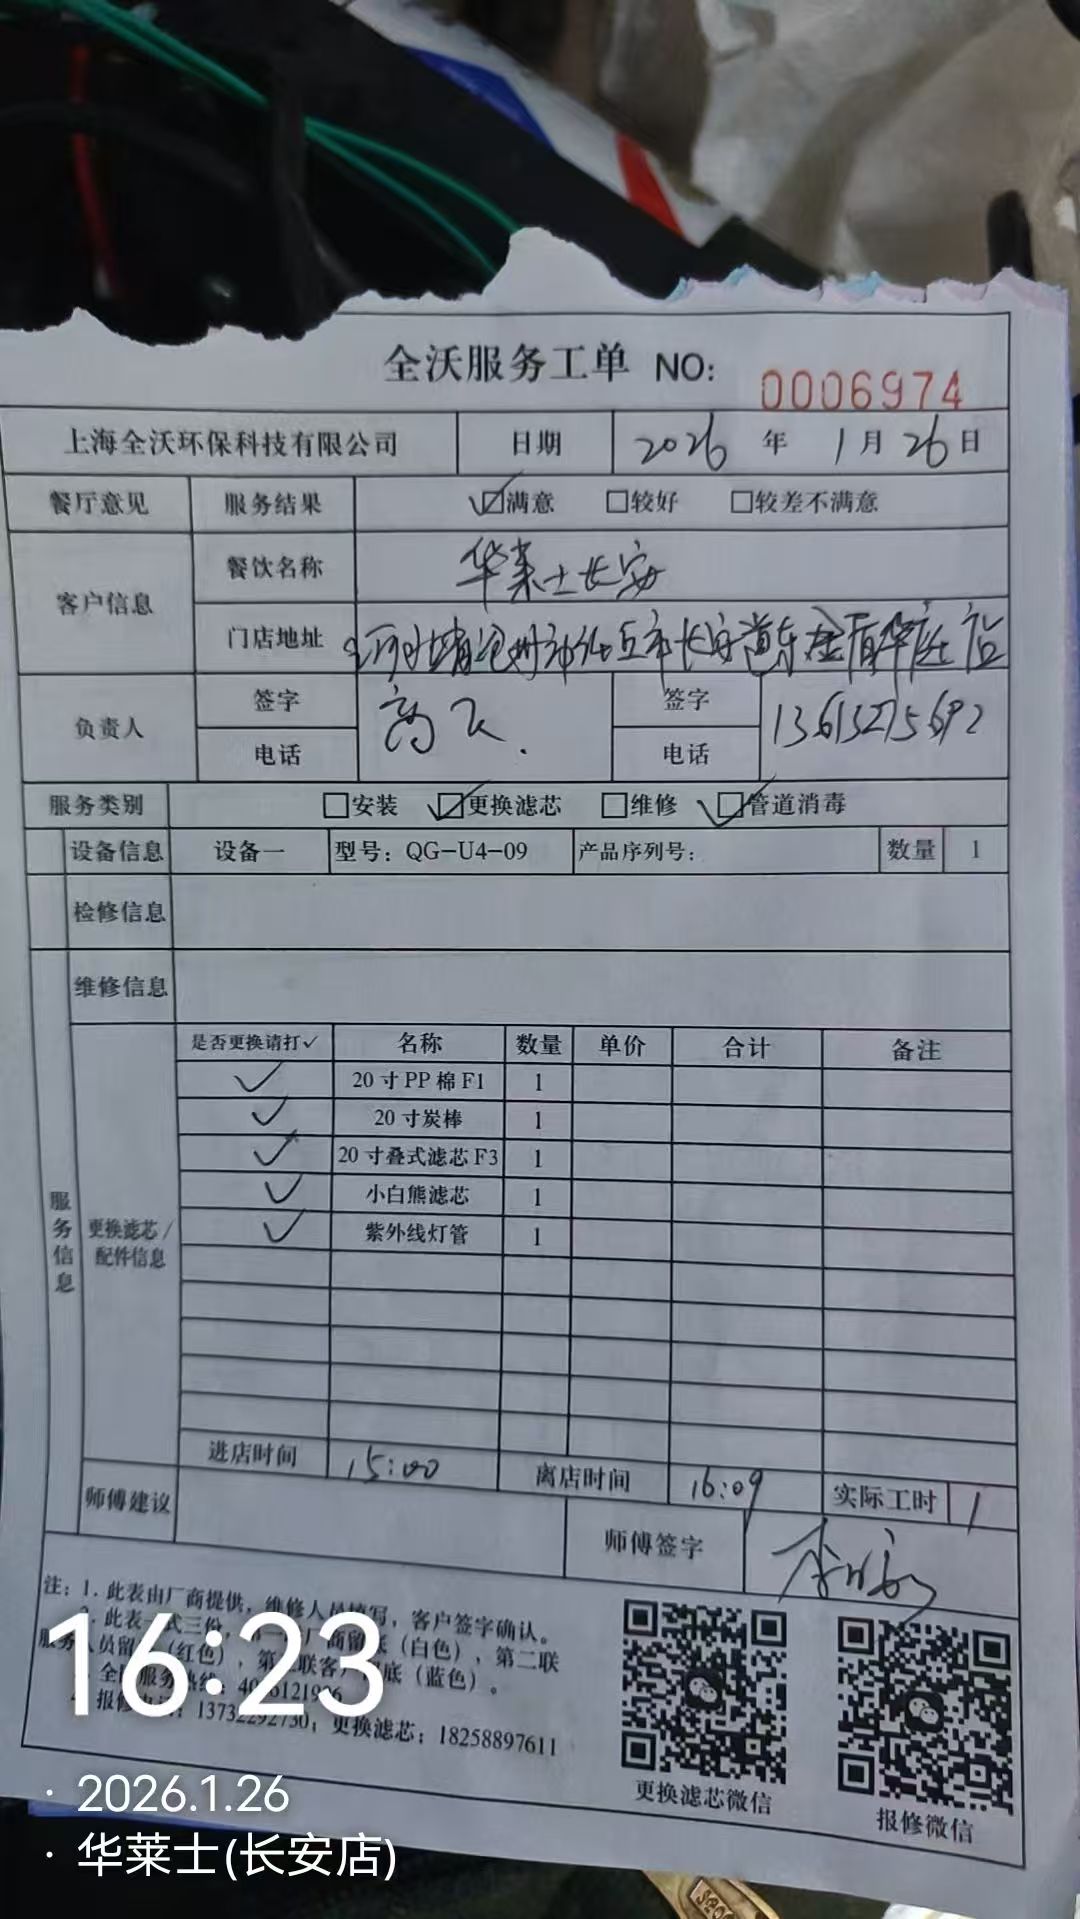 全沃服务工单 NO: 0006974
上海全沃环保科技有限公司 日期 2026 年 1 月 26 日
餐厅意见 服务结果 ☑满意 □较好 □较差不满意
客户信息 餐饮名称 华莱士长安
门店地址 河北省沧州市任丘市长安道东金盾华庭店
负责人 签字 高飞 签字
电话 电话 13613275692
服务类别 □安装 ☑更换滤芯 □维修 ☑管道消毒
设备信息 设备一 型号：QG-U4-09 产品序列号： 数量 1
检修信息
维修信息
服务信息
更换滤芯/配件信息
是否更换请打✓ 名称 数量 单价 合计 备注
✓ 20寸PP棉F1 1
✓ 20寸炭棒 1
✓ 20寸叠式滤芯F3 1
✓ 小白熊滤芯 1
✓ 紫外线灯管 1
进店时间 15:00 离店时间 16:09 实际工时 1
师傅建议 师傅签字
注：1. 此表由厂商提供，维修人员填写，客户签字确认。
2. 此表一式三份，商留底（白色），第二联
服务人员留（红色），第三联客底（蓝色）。
全国服务热线：
报修电话： 更换滤芯：18258897611
更换滤芯微信
报修微信
16:23
· 2026.1.26
· 华莱士(长安店)